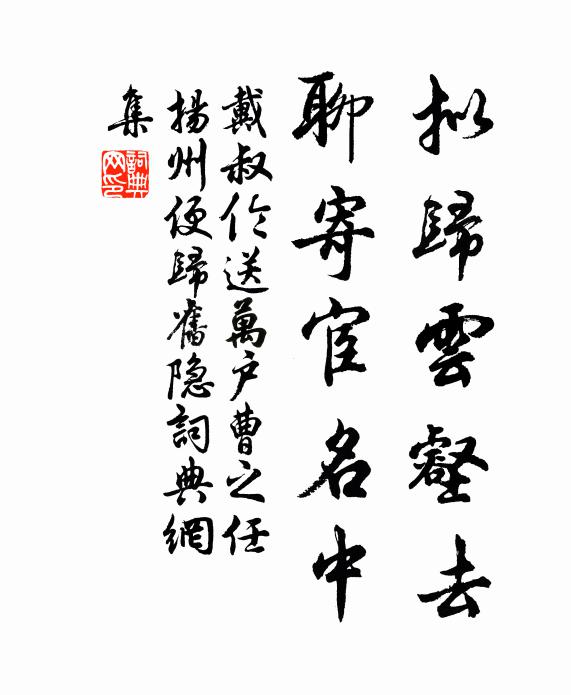 拟歸雲壑去
聊寄宦名中
戴叔伦送萬户曹之任
揚州便歸舊隐詞典網
集
詞典
网印